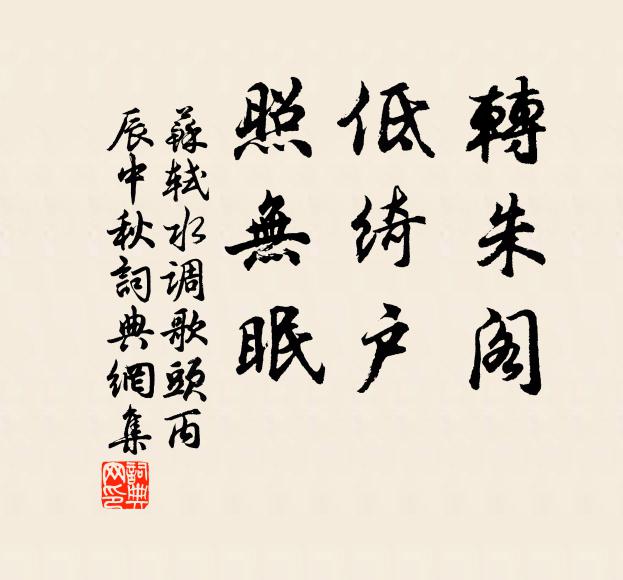 轉朱阁
低绮户
照無眠
蘇軾水调歌頭丙
辰中秋詞典網集
詞典
网印